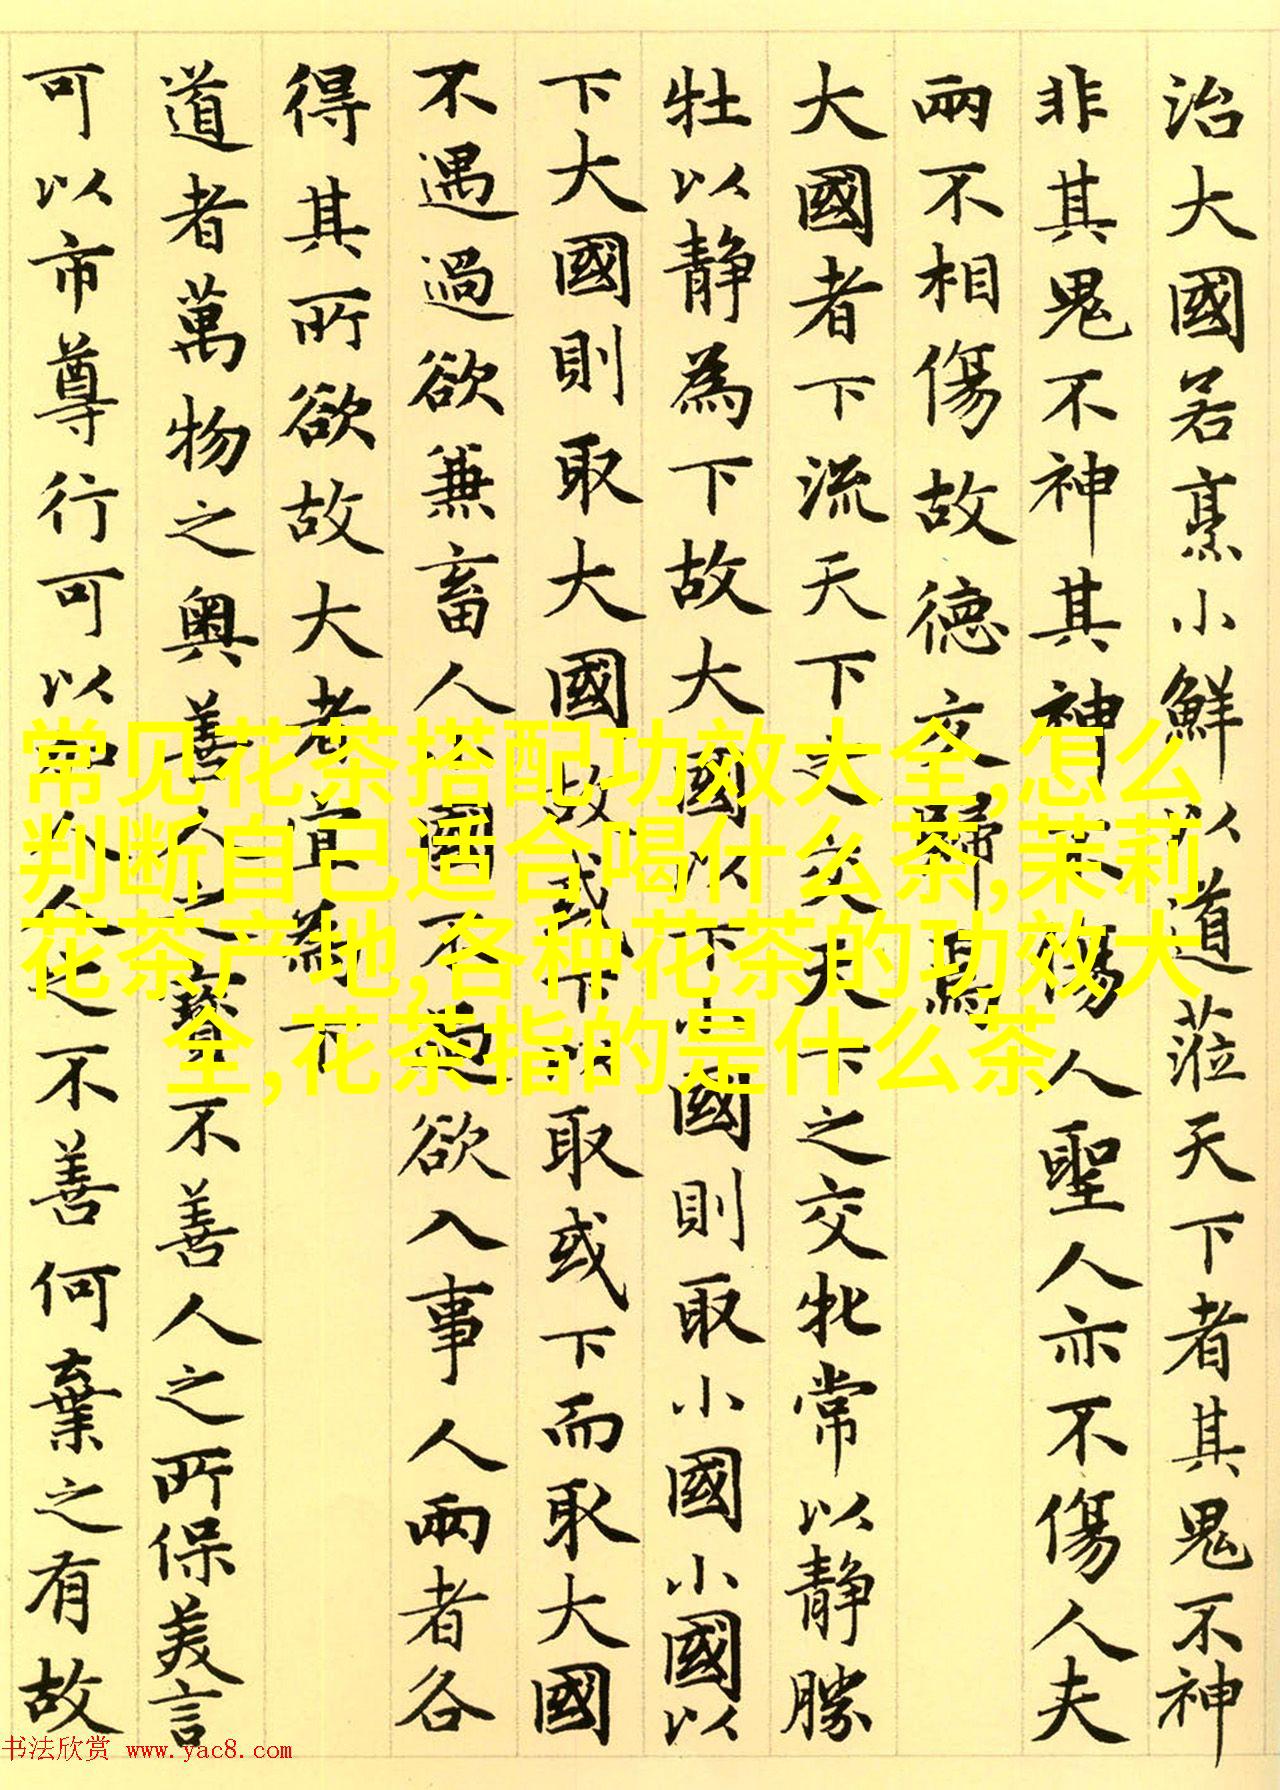 治大國若烹小鮮以道蒞天下者其鬼不神
非其鬼不神其神不傷人聖人亦不傷人夫
兩不相傷故德交歸焉
大國者下流天下之交天下之交牝常以静勝
牡以静為下故大國以下小國則取小國小國以
下大國則取大國故或下以取或下而取大國
不遇過欲兼畜人小國不過欲入事人兩者各
得其所欲故大者宜為下
道者萬物之奥善人之寶不善人之所保美言
可以市尊行可以加人人之不善何棄之有故
常见花茶搭配功效大全,怎么
判断自己适合喝什么茶,茉莉
花茶产地,各种花茶的功效大
全,花茶指的是什么茶
书法欣赏 www.yac8.com